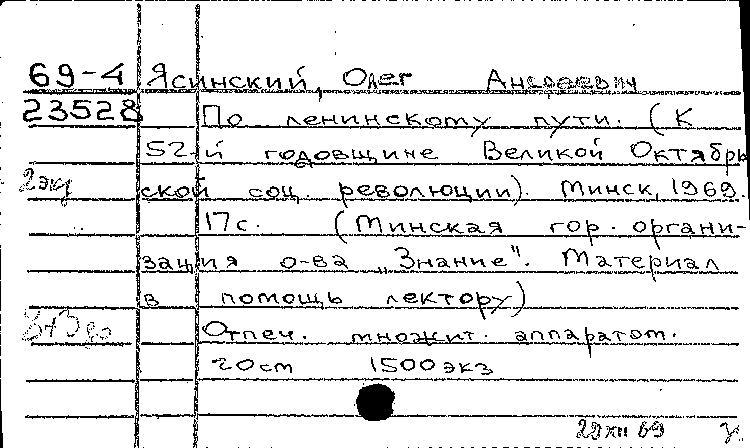 69-4 Ясинский, Олег Андреевич
23528 По ленинскому пути. (К
52-й годовщине Великой Октябрь
2 экз ской соц. революции). Минск, 1969.
17с. (Минская гор. органи-
зация о-ва „Знание". Материал
в помощь лектору)
Отпеч. множит. аппаратом.
20см 1500 экз
29 XII 69